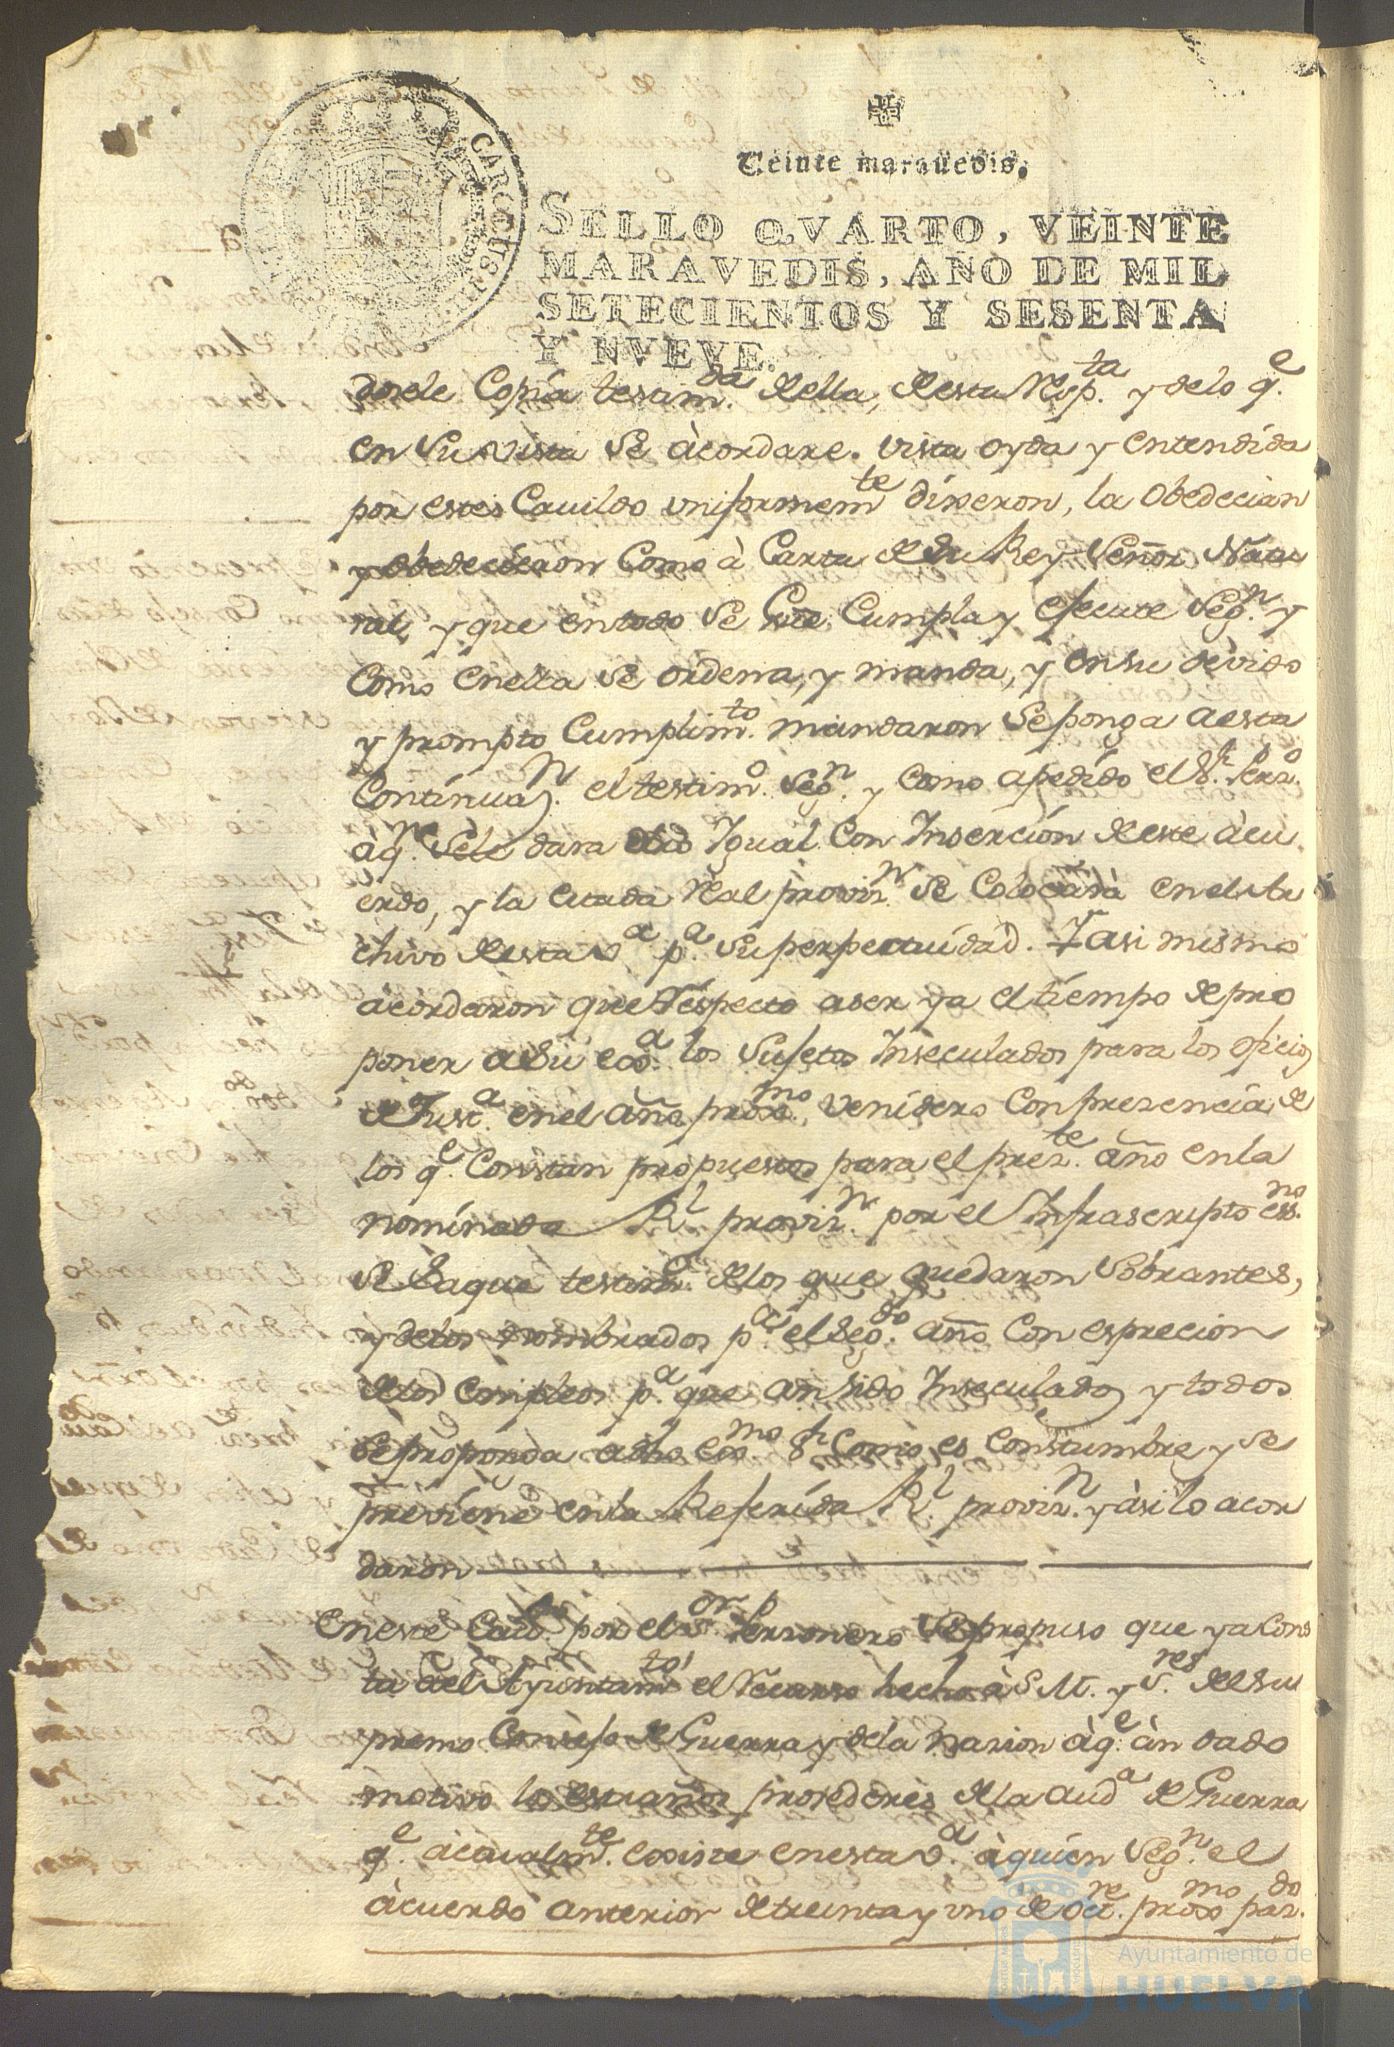 Veinte marauedis.
CAROLUS III
SELLO QVARTO, VEINTE
MARAVEDIS, AÑO DE MIL
SETECIENTOS Y SESENTA
Y NVEVE.
dosele Copia testimda. della, desta Respta. y delo qe.
en Su Vista Se àcordare. Vista oyda y entendida
por estes Cavildo uniformemte dixeron, la Obedecian
y obedecieron Como à Carta de Su Rey Señor Natu
ral, y que entodo Se Gue. Cumpla y efecute Segn. y
Como enella Se ordena, y manda, y ensu devido
y prompto Cumplimto. mandaron Seponga aesta
Continuan. el testimo. Segn. y como apedido el Sr. Perzo.
àqn. Sele dara otro Igual Con Insercion deste àcu
erdo, y la citada Real provizn. Se Colocàrà enel Ar
chivo desta Va. pa. Superpectuidad. Yasi mismo
àcordaron que Respecto aser ya el tiempo de pro
poner asu exa. los Sujetos Inseculados para los oficios
de Justa. enel año proxmo. venidero Conprezencia de
los qe. Constan propuestos para el prezte. año enla
nominada Rl. provizn. por el Infrascripto essno.
Se Saque testimo. delos que quedaron Sobrantes,
y delos nombrados pa. el Segdo. año Con esprecion
delos empleos pa. que an Sido Inseculados y todos
Se proponda adho exmo. Sr. Como es Constumbre y se
previene enla Referida Rl. provizn. y àsi lo acor
daron
Eneste Cavdo. por el Sor. Perzonero Se propuso que ya Cons
ta del Ayuntamto. el Recurso hecho à S. M. y Sres. del Su
premo Consejo de Guerra y dela Nazion àqe. àn dado
motivo lo estraños prosederes dela auda. de Guerra
qe. àcualmte. existe enesta Va. àquien Segn. el
àcuerdo anterior de treinta y uno de octre. proxmo pazdo.
Ayuntamiento de
HUELVA